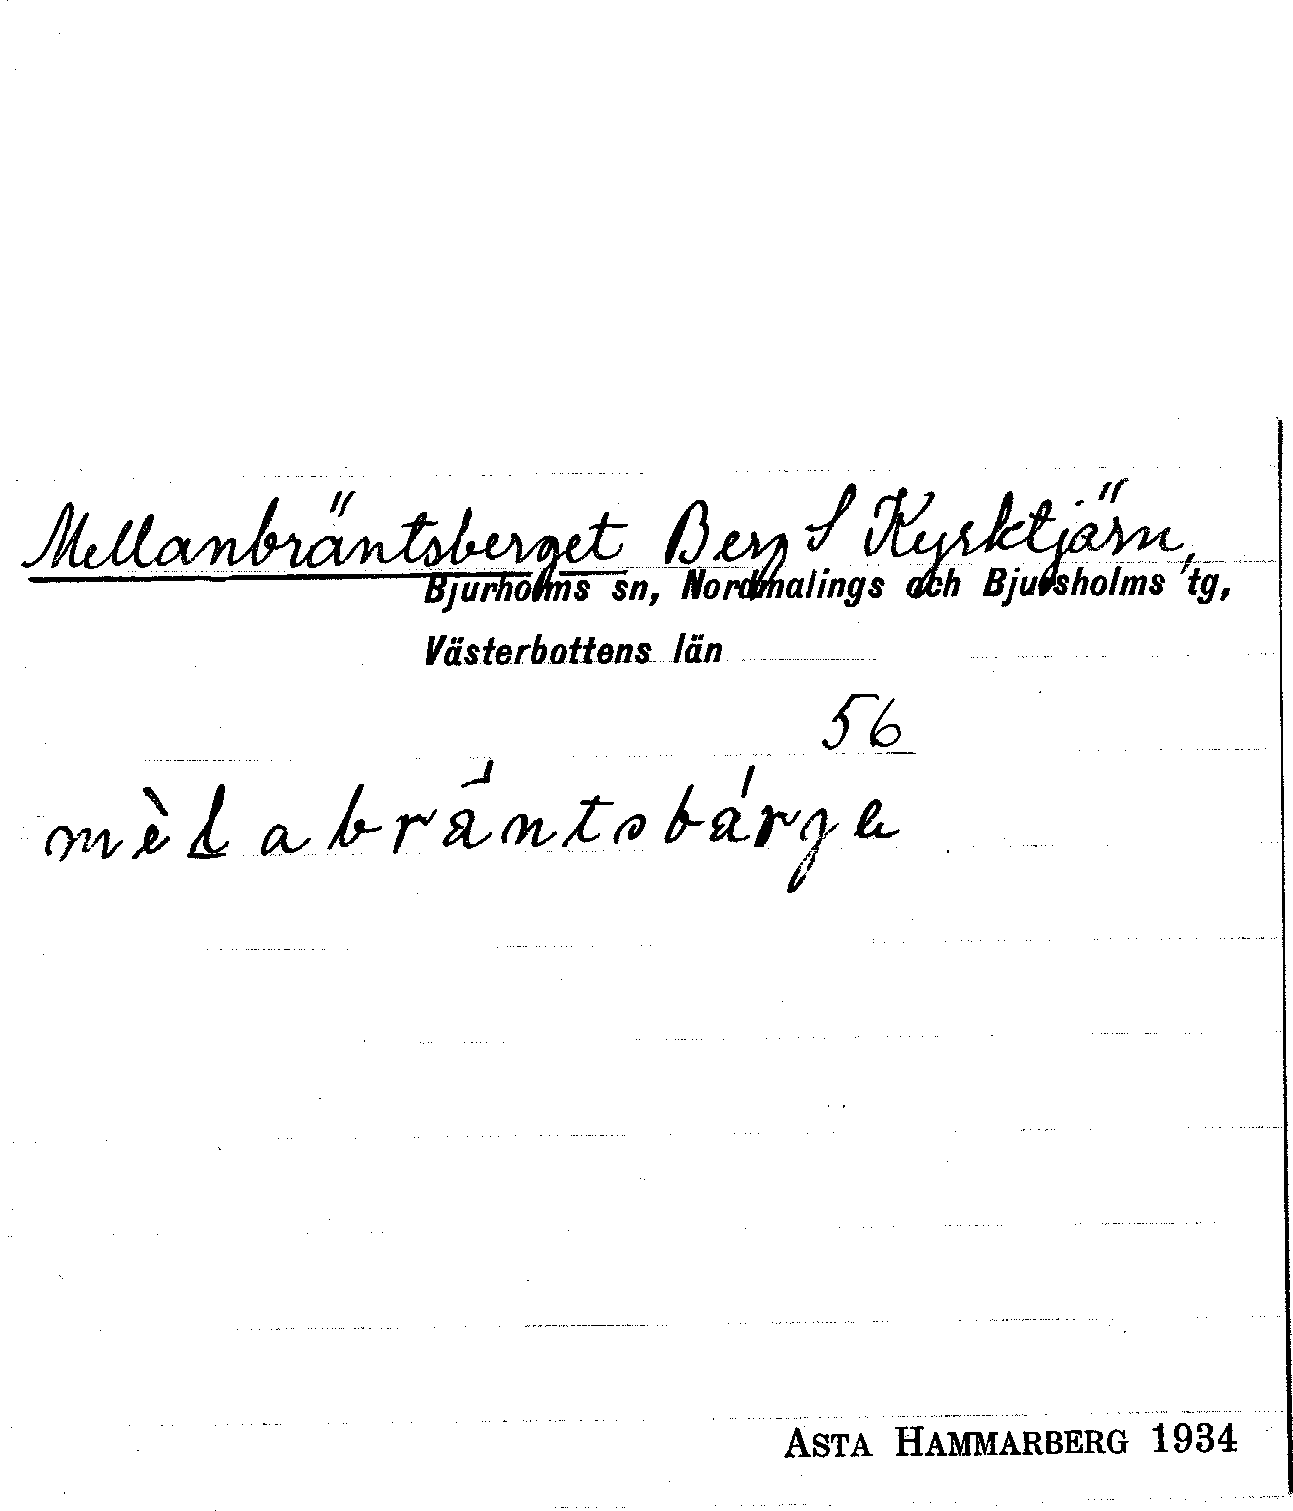 Mellanbräntsberget Berg S Kyrktjärn,
Bjurholms sn, Nordmalings och Bjurholms tg,
Västerbottens län
56
ASTA HAMMARBERG 1934